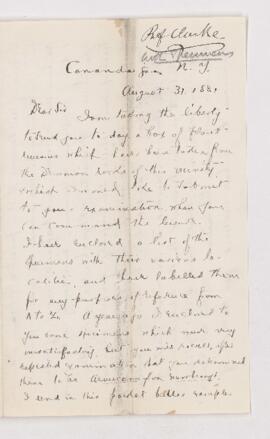 Ref Clarke
Canandaigua N. Y.
August 31, 188
Dear Sir
I am taking the liberty
to send you to day a box of plant
remains which have been taken from
the Devonian rocks of this vicinity
which I would like to submit
to your examination when you
can command the leisure.
I have enclosed a list of the
specimens with their various lo-
calities, and have labelled them
for any purposes of reference from
A to Z. A year ago I enclosed to
you some specimens which were very
unsatisfactory, but you will recall, after
repeated examination that you determined
them to be
I send in this packet better samples